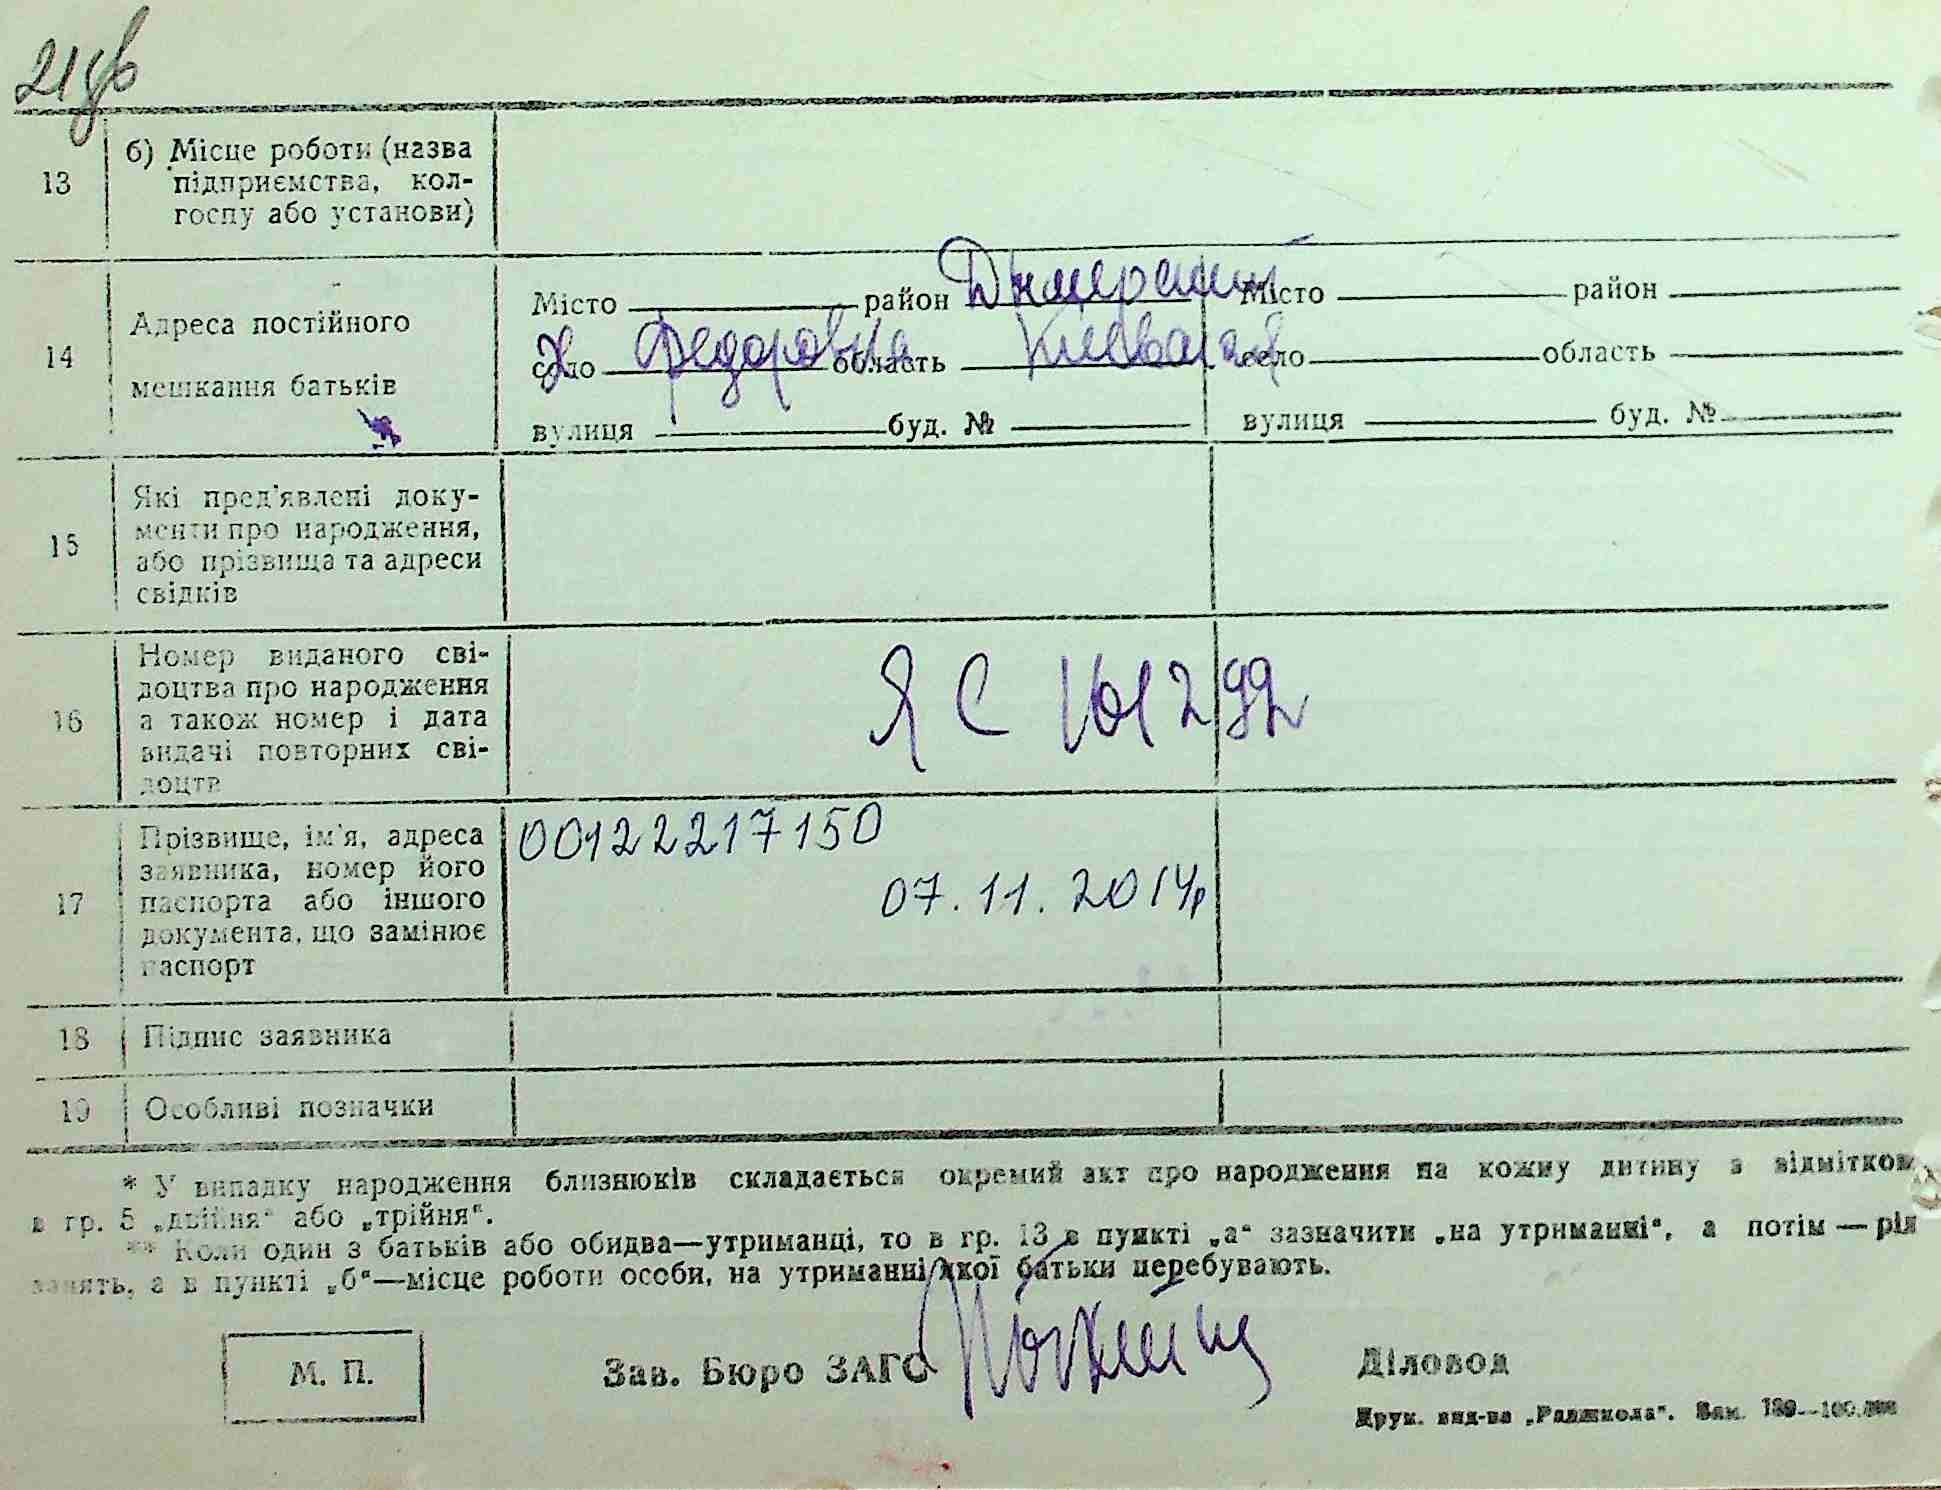 13 б) Місце роботи (назва
підприємства, кол-
госпу або установи)
14 Адреса постійного
мешкання батьків
Місто район Димерський Місто район
х Федоровка область Киевская село область
вулиця буд. № вулиця буд. №
15 Які пред'явлені доку-
менти про народження,
або прізвища та адреси
свідків
16 Номер виданого сві-
доцтва про народження
а також номер і дата
видачі повторних сві-
доцтв
ЯС 161292
17 Прізвище, ім'я, адреса
заявника, номер його
паспорта або іншого
документа, що замінює
паспорт
00122217150
07.11.2014р
18 Підпис заявника
19 Особливі позначки
* У випадку народження близнюків складається окремий акт про народження на кожну дитину з відміткою
в гр. 5 „двійня“ або „трійня“.
** Коли один з батьків або обидва—утриманці, то в гр. 13 в пункті „а“ зазначити „на утриманні“, а потім — рід
занять, а в пункті „б“—місце роботи особи, на утриманні якої батьки перебувають.
М. П.
Зав. Бюро ЗАГС
Діловод
Друк. вид-ва „Радшкола“. Зам. 189—100.000